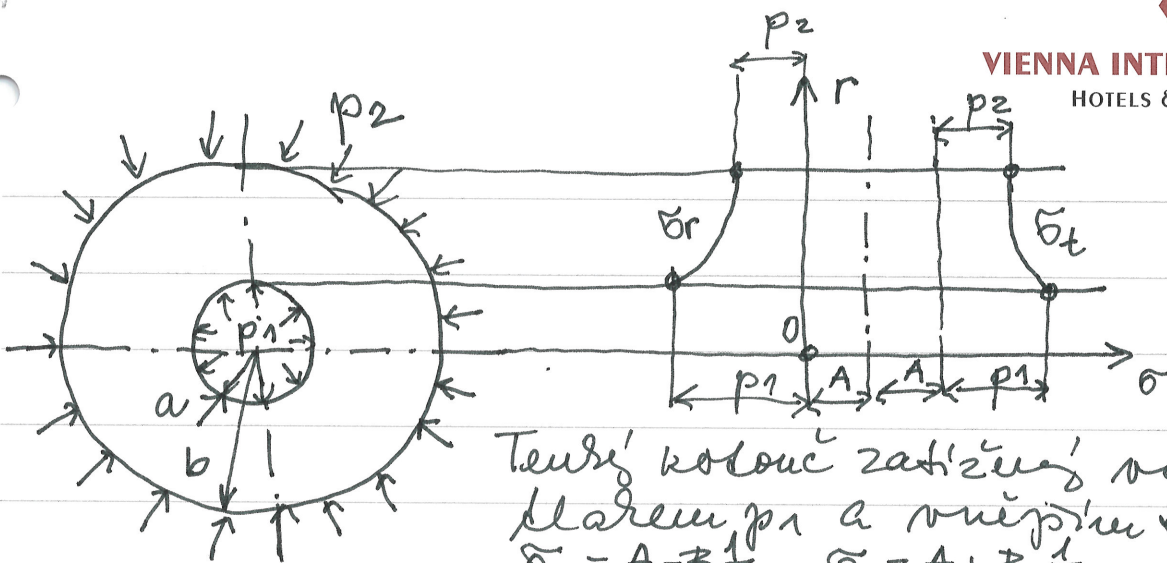 VIENNA INT
HOTELS &
p2
p2
r
p2
σr
σt
p1
0
a
p1
A
A
p1
σ
b
Tenký kotouč zatížený
tlakem p1 a vnějším